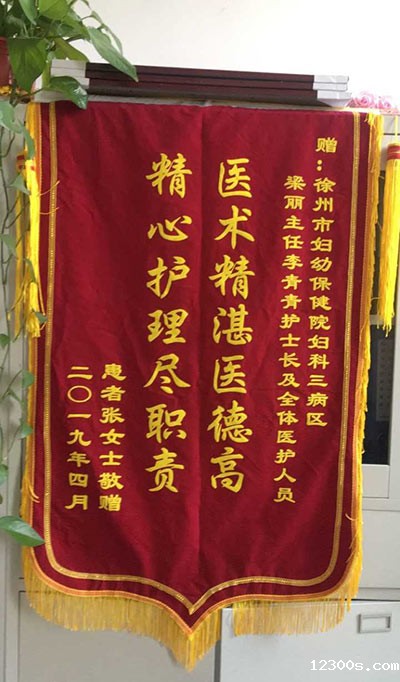 赠：徐州市妇幼保健院妇科三病区
梁丽主任李青青护士长及全体医护人员
医术精湛医德高
精心护理尽职责
患者张女士敬赠
二〇一九年四月
12300s.com